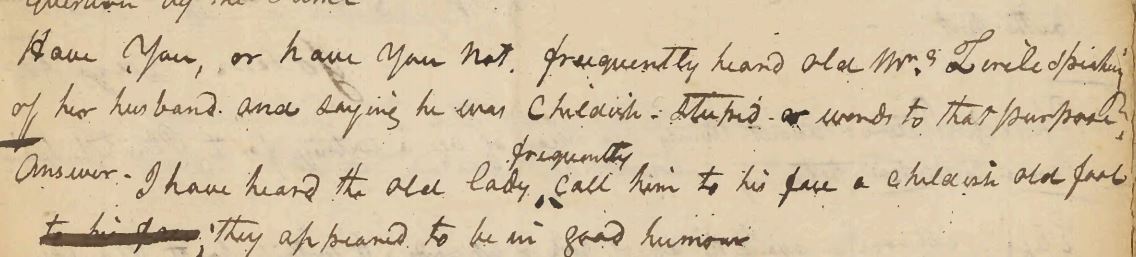 question by the Same
Have You, or have You Not, frequently heard old Mrs. Zirile Speaking
of her husband. and saying he was Childish - Stupid - or words to that purpose?
Answer - I have heard the old lady frequently Call him to his face a childish old fool
to his face; they appeared to be in good humour